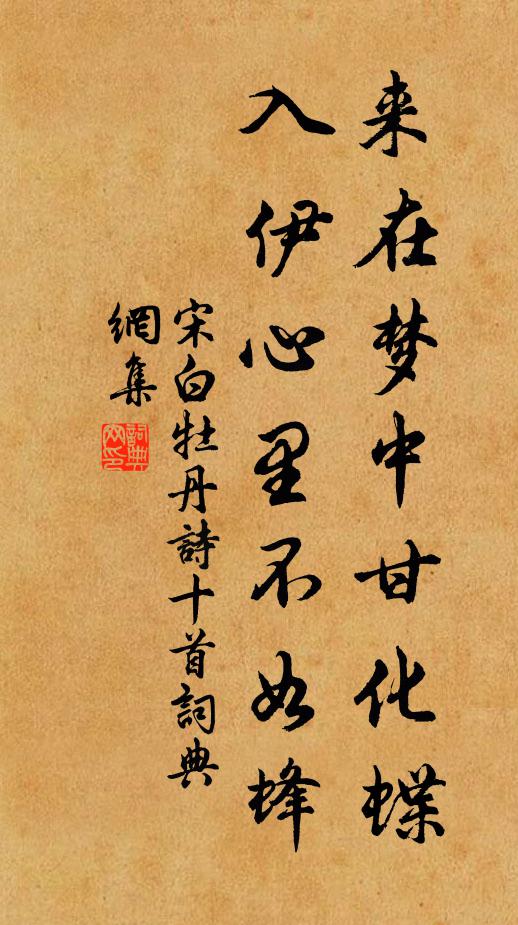 来在梦中甘化蝶
入伊心里不如蜂
宋白牡丹詩十首詞典
網集
詞典
网印